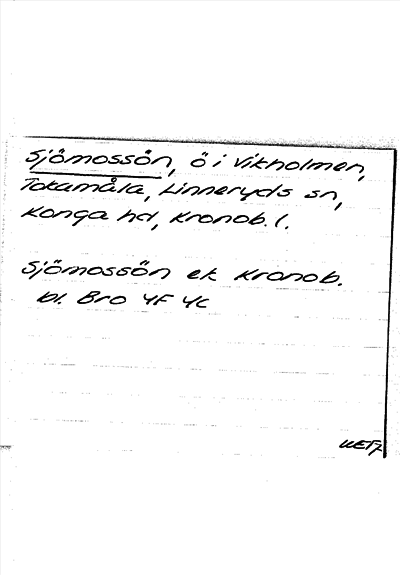 Sjömossön, ö i Vikholmen,
Tokamåla, Linneryds sn,
Konga hd, Kronob. l.
Sjömossön ek Kronob.
bl. Bro 4F 4c